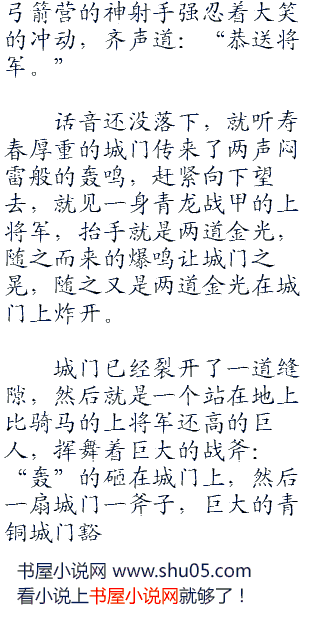 弓箭营的神射手强忍着大笑
的冲动，齐声道：“恭送将
军。”
话音还没落下，就听寿
春厚重的城门传来了两声闷
雷般的轰鸣，赶紧向下望
去，就见一身青龙战甲的上
将军，抬手就是两道金光，
随之而来的爆鸣让城门之
晃，随之又是两道金光在城
门上炸开。
城门已经裂开了一道缝
隙，然后就是一个站在地上
比骑马的上将军还高的巨
人，挥舞着巨大的战斧：
“轰”的砸在城门上，然后
一扇城门一斧子，巨大的青
铜城门豁
书屋小说网 www.shu05.com
看小说上书屋小说网就够了！